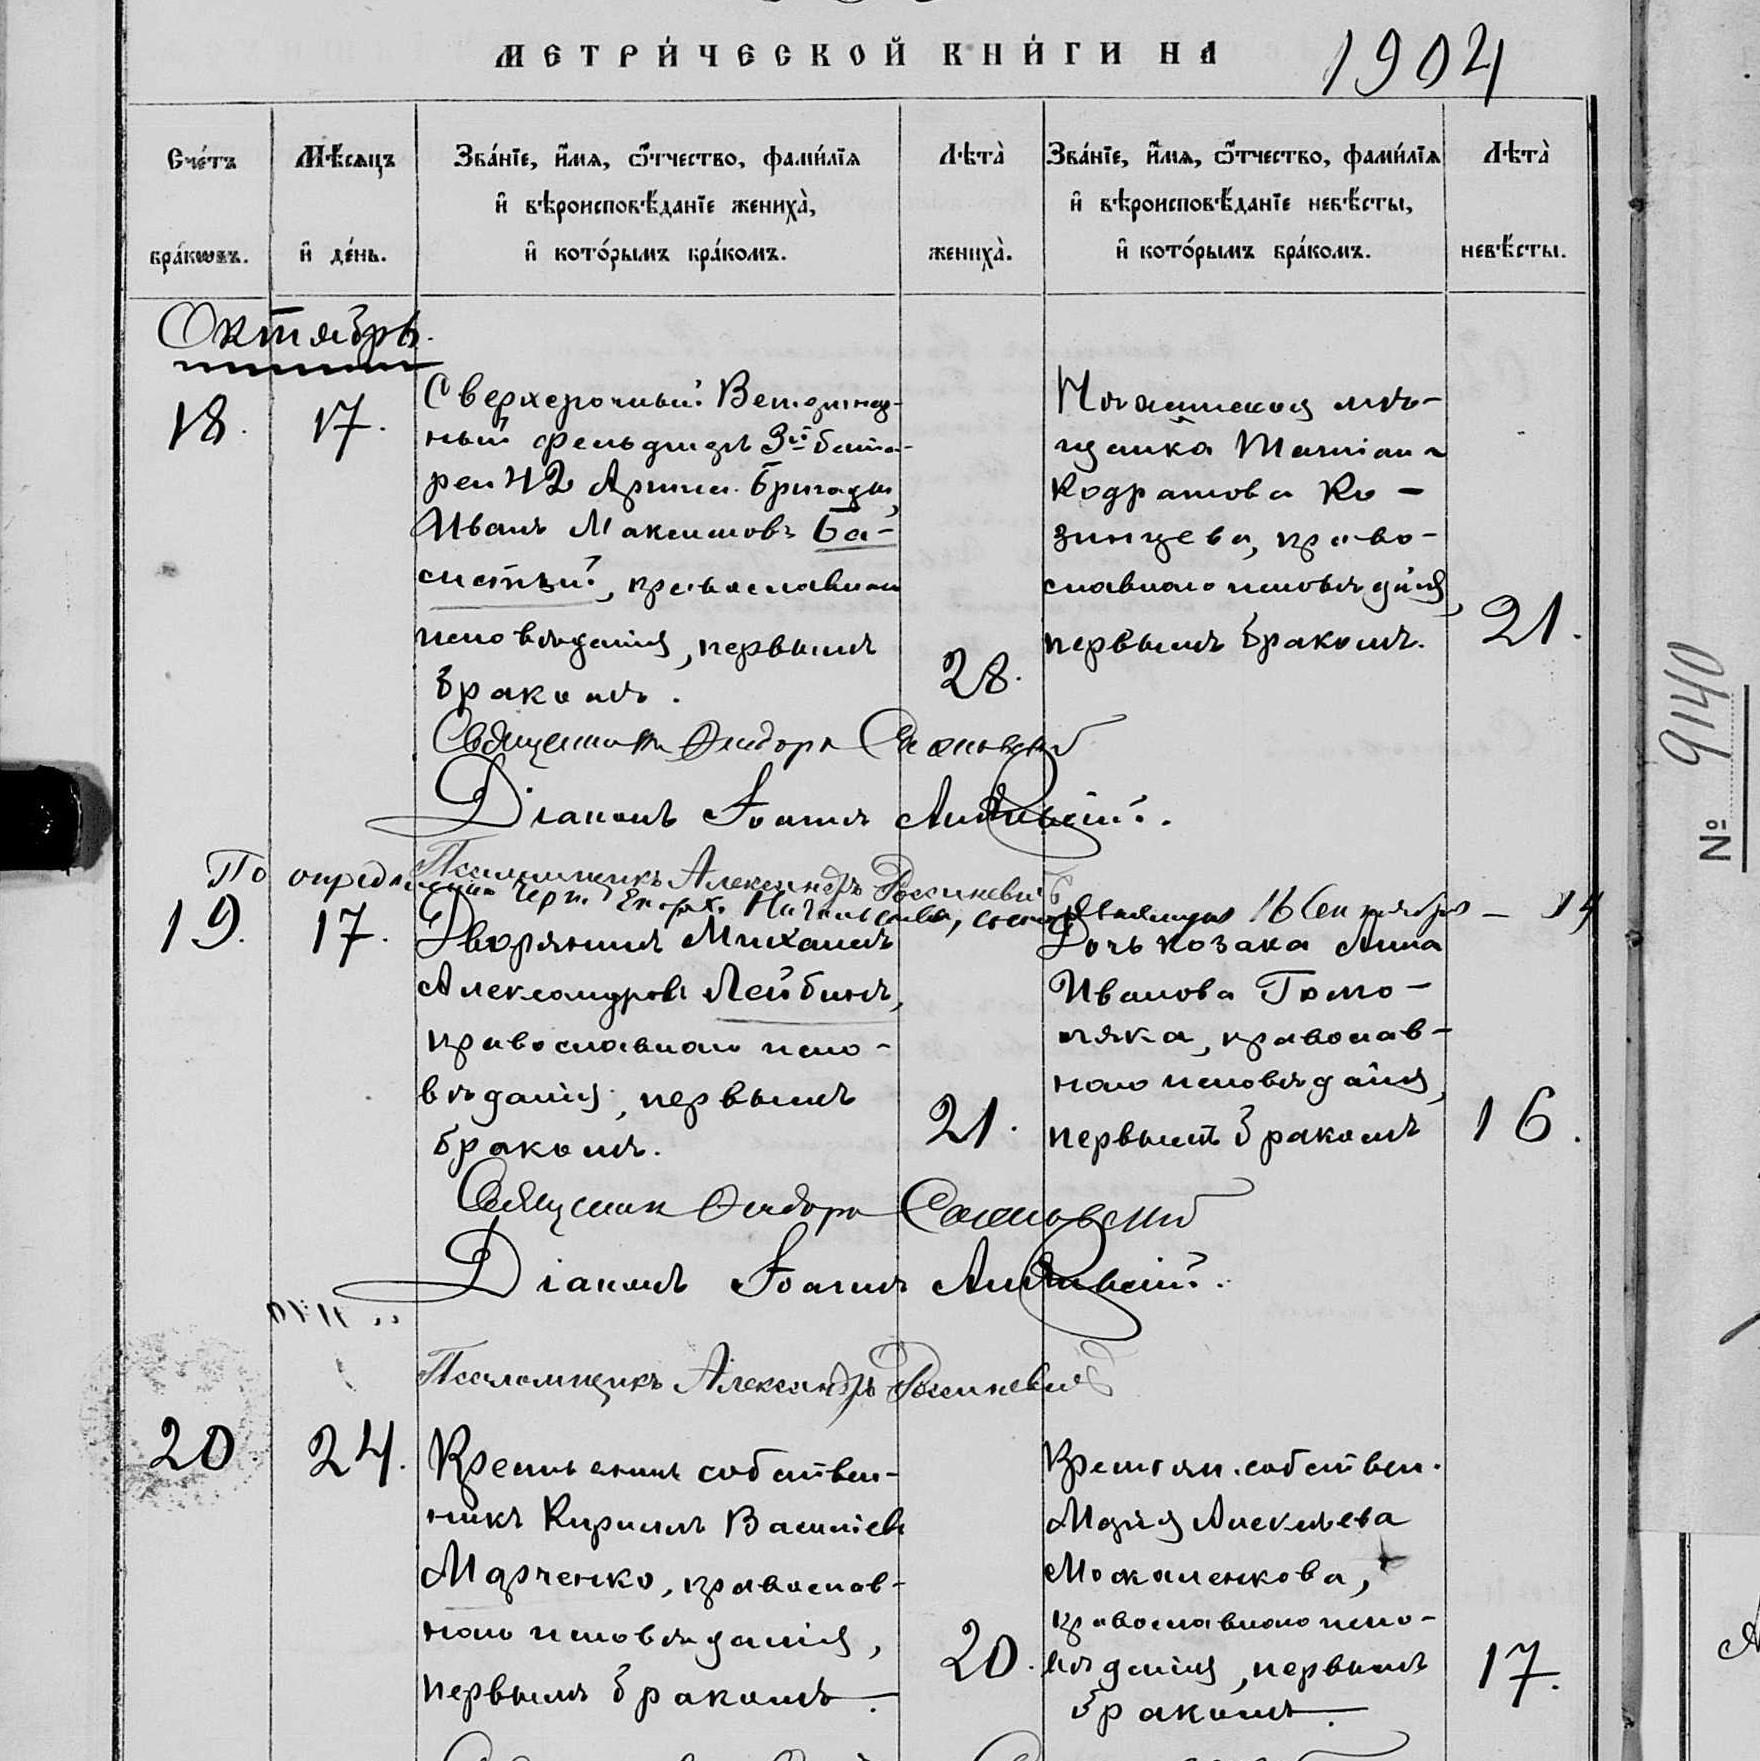 МЕТРИ́ЧЕСКОЙ КНИ́ГИ НА 1904
Сче́тъ бра́кωвъ.
Мѣ́сяцъ и҆ де́нь.
Зва́нїе, и҆́мя, ѻ҆́тчество, фами́лїя
и҆ вѣроисповѣ́данїе жениха̀,
и҆ кото́рымъ бра́комъ.
Лѣта̀
жениха̀.
Зва́нїе, и҆́мя, ѻ҆́тчество, фами́лїя
и҆ вѣроисповѣ́данїе невѣ́сты,
и҆ кото́рымъ бра́комъ.
Лѣта̀
невѣ́сты.
Октябрь.
18.
17.
Сверхсрочный Ветеринар-
ный фельдшеръ 3й бата-
реи 42 Артил. бригады,
Иванъ Максимовъ Ба-
систый, православнаго
исповѣданія, первымъ
бракомъ.
28.
мѣ-
щанка
Кодратова Ко-
зинцева, право-
славнаго исповѣданія,
первымъ бракомъ.
21.
Священникъ
Діаконъ Іоаннъ
Псаломщикъ Александръ
По опредѣленію Черн. Епарх. Начальства, 16 Сентября
19.
17.
Дворянинъ Михаилъ
Александровъ Лейбинъ,
православнаго испо-
вѣданія, первымъ
бракомъ.
21.
Дочь козака Анна
Иванова Гомо-
ляка, православ-
наго исповѣданія,
первымъ бракомъ
16.
Священникъ
Діаконъ Іоаннъ
Псаломщикъ Александръ
20
24.
Крестьянинъ собствен-
никъ Кириллъ Васильевъ
Марченко, православ-
наго исповѣданія,
первымъ бракомъ.
20.
Крестьян. собствен.
Марія Алексѣева
Можаленкова,
православнаго испо-
вѣданія, первымъ
бракомъ.
17.
№ 9140